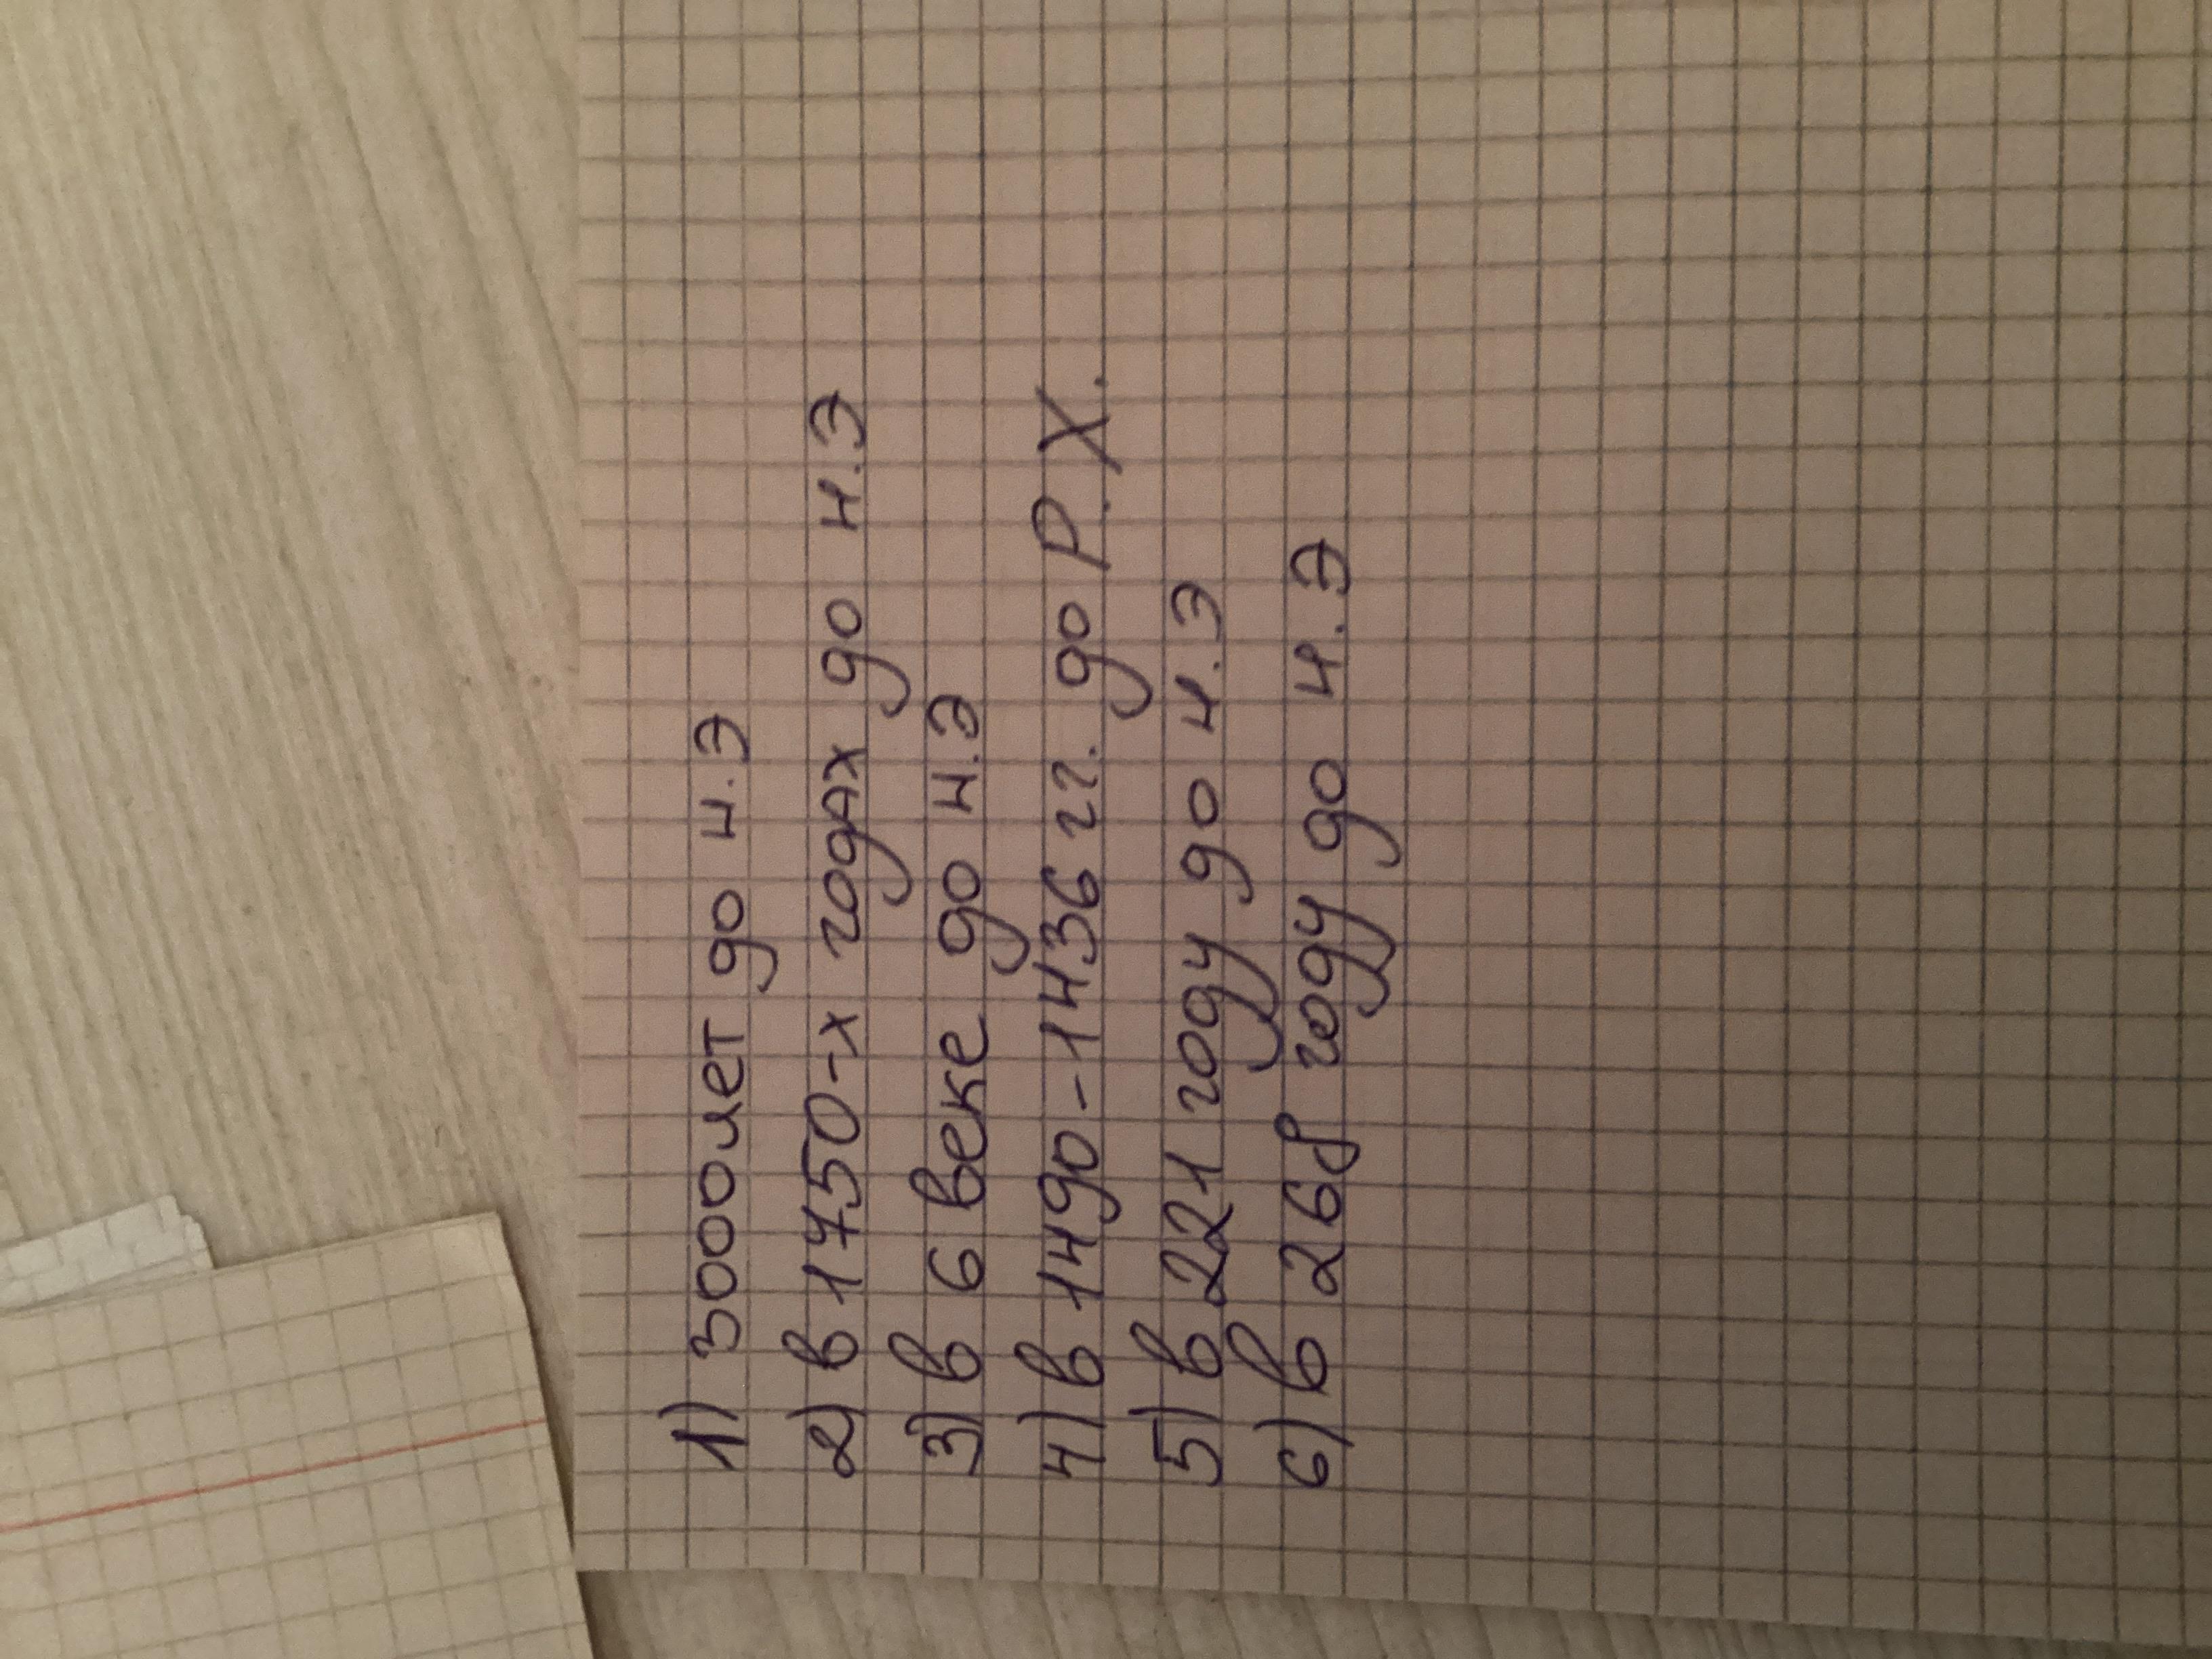 1) 3000лет до н.э
2) в 1750-х годах до н.э
3) в 6 веке до н.э
4) в 1490-1436 гг. до Р.Х.
5) в 221 году до н.э
6) в 268 году до н.э